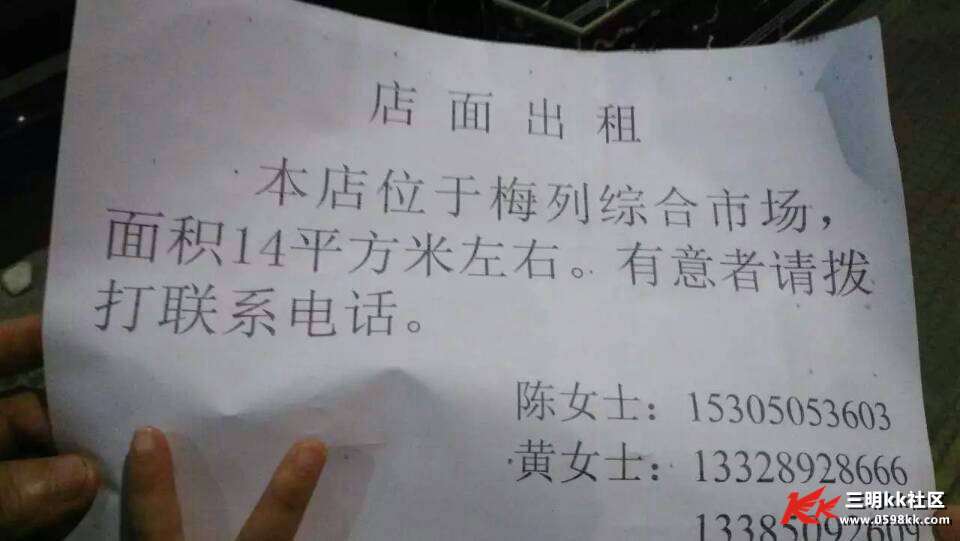 店面出租
本店位于梅列综合市场，
面积14平方米左右。有意者请拨
打联系电话。
陈女士：15305053603
黄女士：13328928666
13385092609
三明kk社区
www.0598kk.com